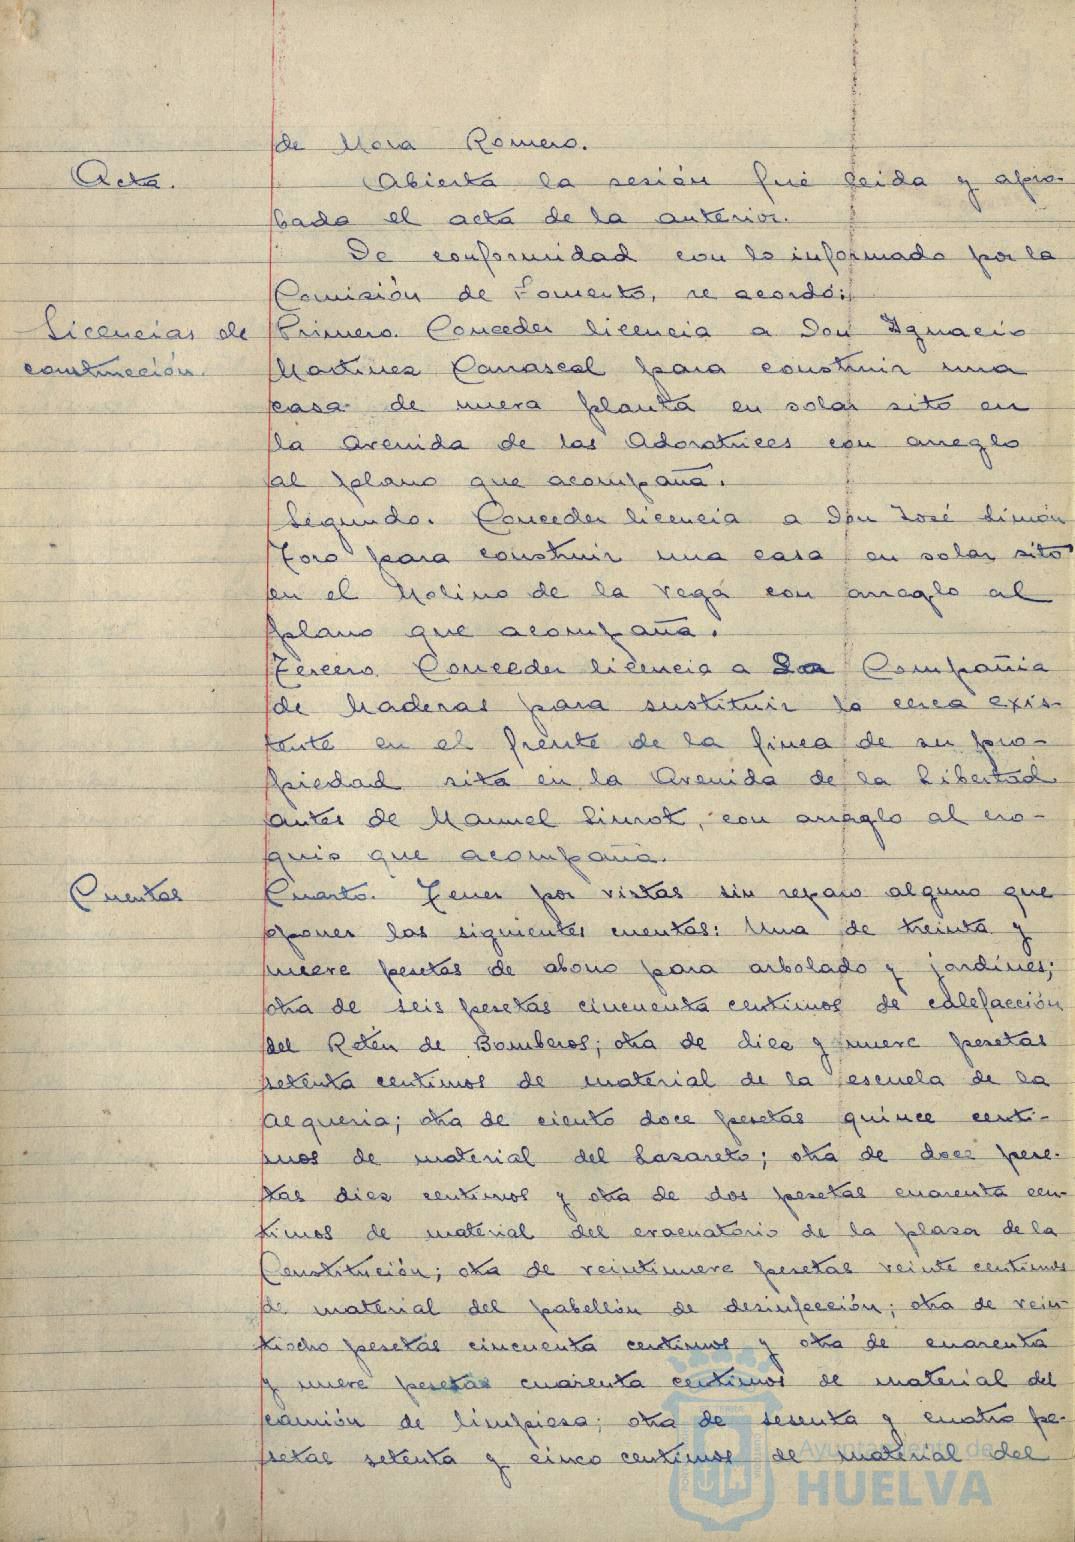 de Mora Romero.
Acta.
Abierta la sesión fué leida y apro-
bada el acta de la anterior.
De conformidad con lo informado por la
Comisión de Fomento, se acordó:
Licencias de
construcción.
Primero. Conceder licencia a Don Ignacio
Martinez Carrascal para construir una
casa de nueva planta en solar sito en
la Avenida de las Adoratrices con arreglo
al plano que acompaña.
Segundo. Conceder licencia a Don José Simón
Toro para construir una casa en solar sito
en el Molino de la Vega con arreglo al
plano que acompaña.
Tercero. Conceder licencia a La Compañia
de Maderas para sustituir la cerca exis-
tente en el frente de la finca de su pro-
piedad sita en la Avenida de la Libertad
antes de Manuel Siurot, con arreglo al cro-
quis que acompaña.
Cuentas
Cuarto. Tener por vistas sin reparo alguno que
oponer las siguientes cuentas: Una de treinta y
nueve pesetas de abono para arbolado y jardines;
otra de seis pesetas cincuenta centimos de calefacción
del Retén de Bomberos; otra de diez y nueve pesetas
setenta centimos de material de la escuela de la
Alqueria; otra de ciento doce pesetas quince centi-
mos de material del Lazareto; otra de doce pese-
tas diez centimos y otra de dos pesetas cuarenta cen-
timos de material del evacuatorio de la plaza de la
Constitución; otra de veintinueve pesetas veinte centimos
de material del pabellón de desinfección; otra de vein-
tiocho pesetas cincuenta centimos y otra de cuarenta
y nueve pesetas cuarenta centimos de material del
camión de limpieza; otra de sesenta y cuatro pe-
setas setenta y cinco centimos de material del
Ayuntamiento de
HUELVA